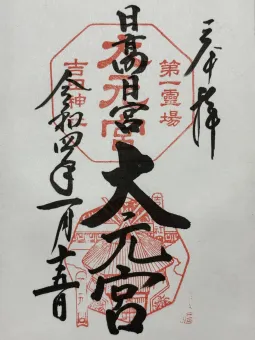 奉拝
第一霊場
日高日宮
大元宮
吉田神社
令和四年一月十五日